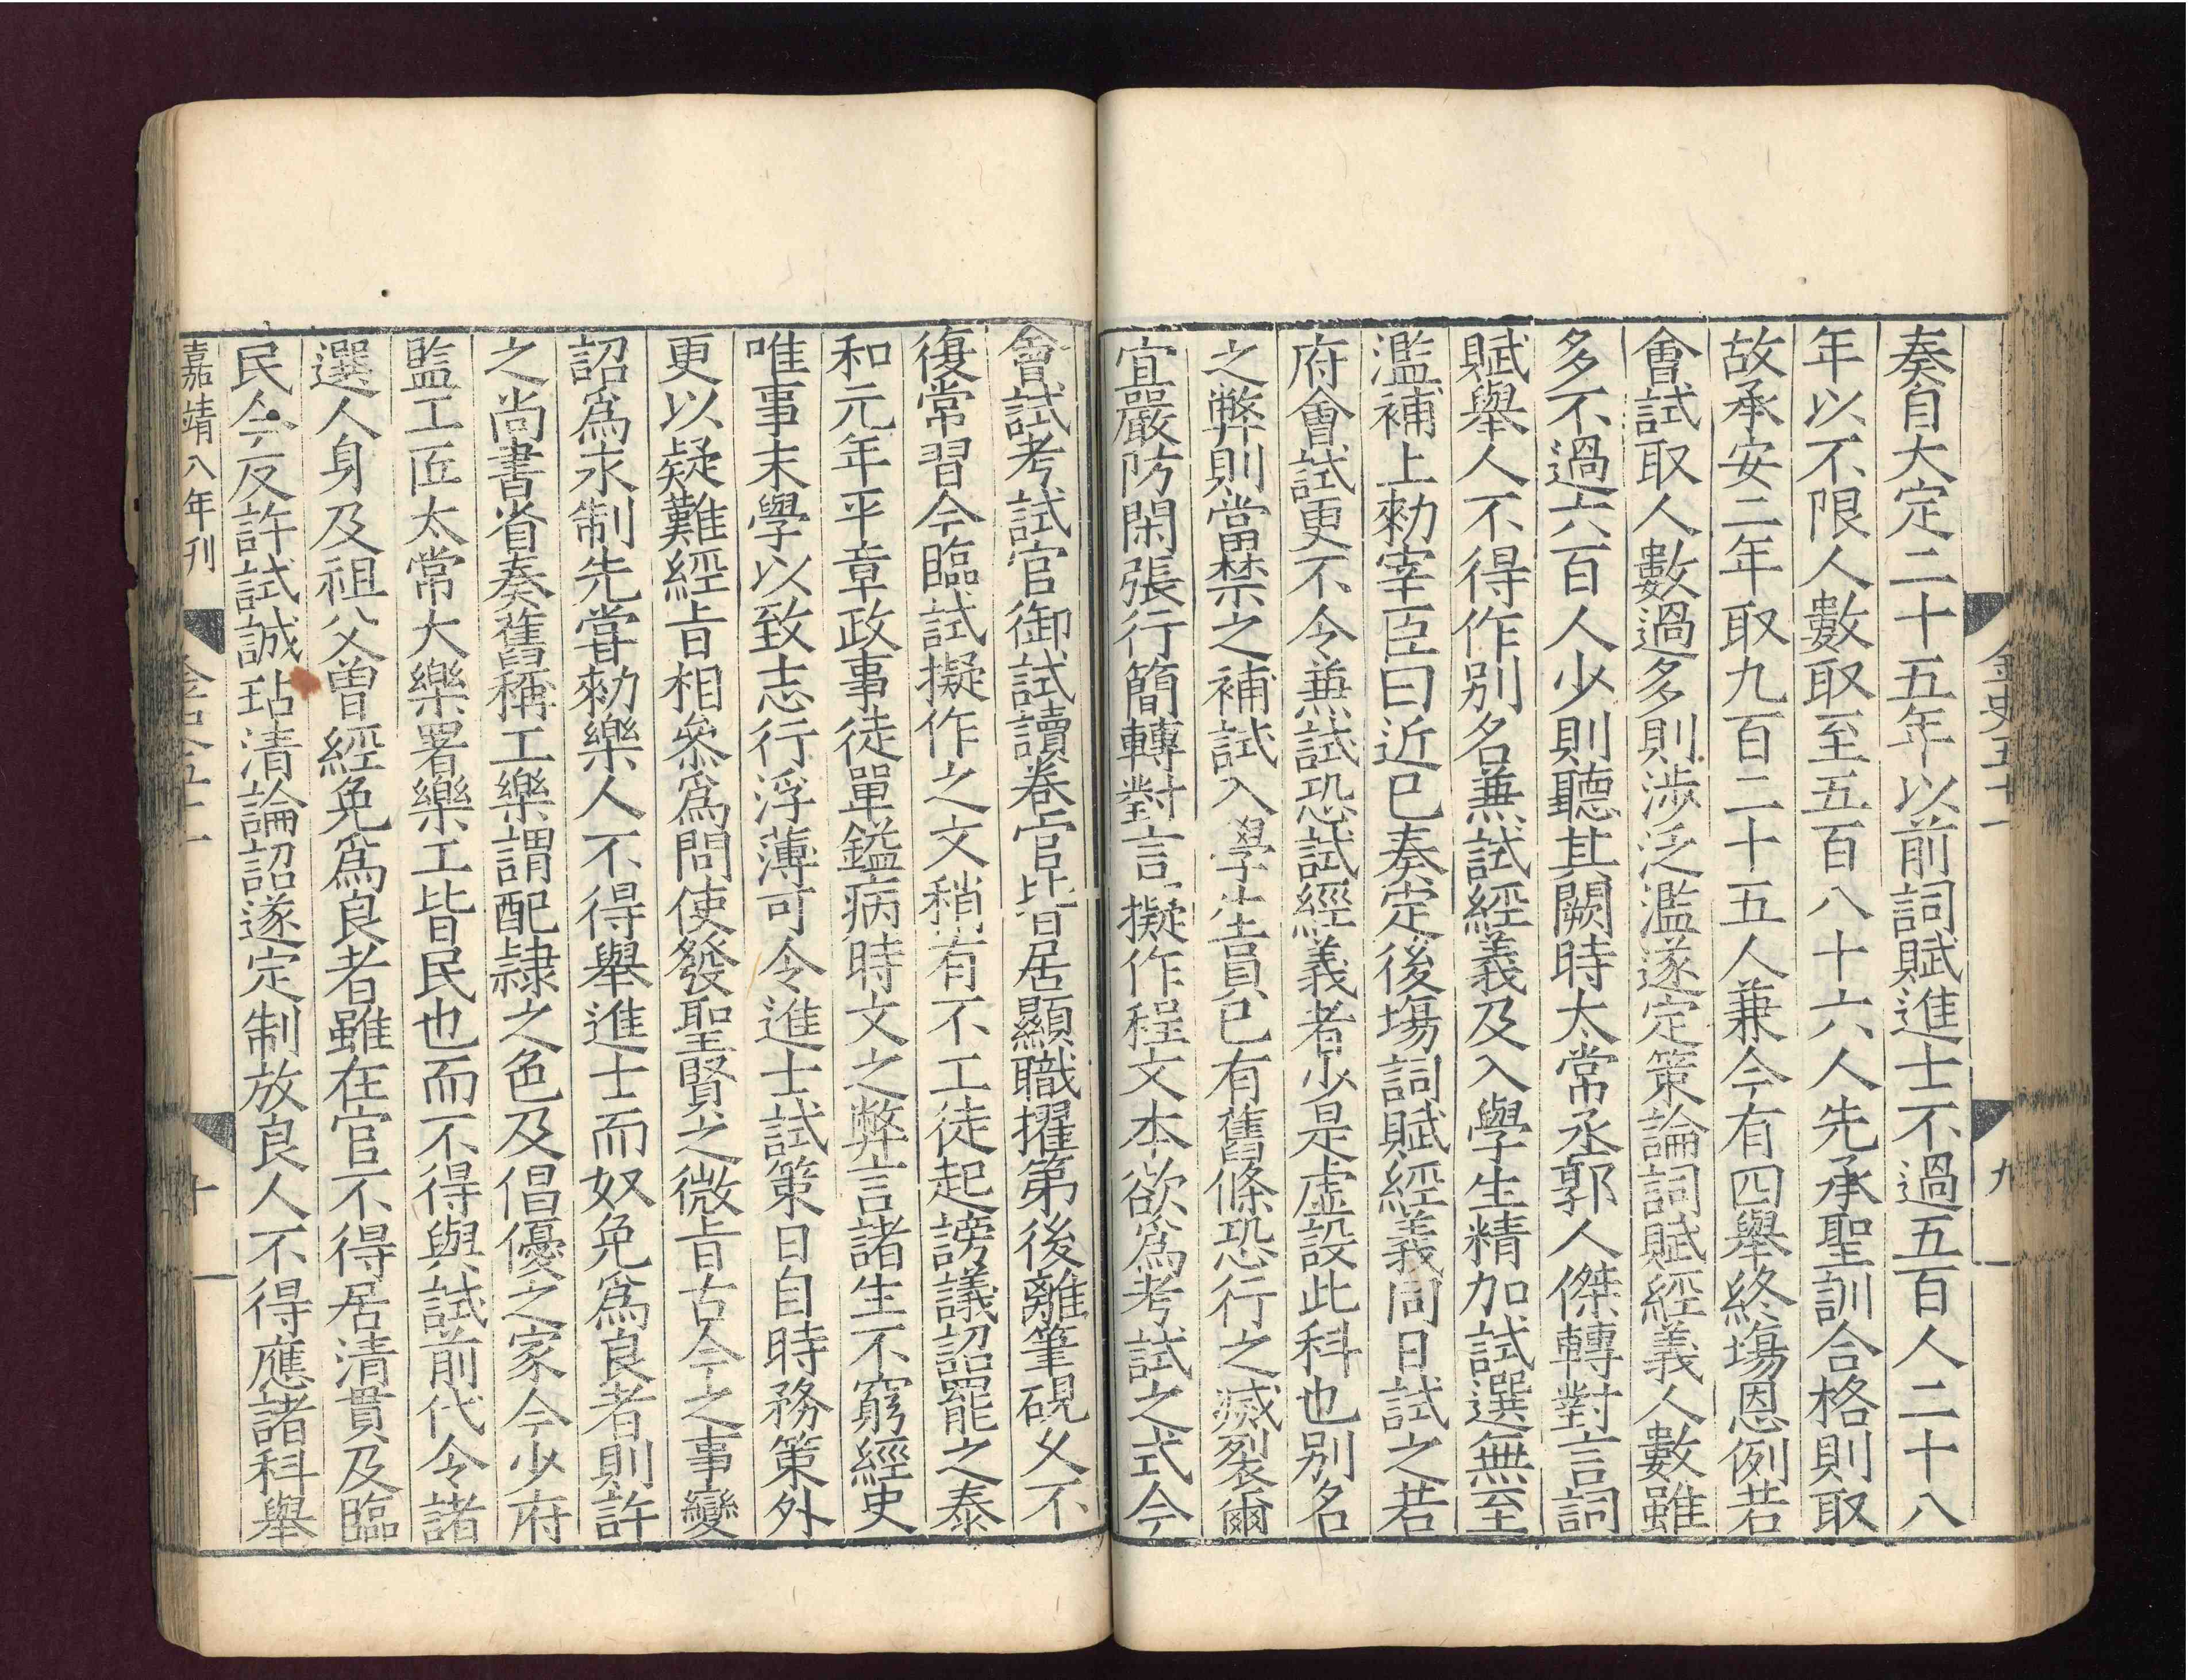 金史五十一
九
奏自大定二十五年以前詞賦進士不過五百人二十八
年以不限人數取至五百八十六人先承聖訓合格則取
故承安二年取九百二十五人兼今有四舉終場恩例若
會試取人數過多則涉泛濫遂定策論詞賦經義人數雖
多不過六百人少則聽其闕時太常丞郭人傑轉對言詞
賦舉人不得作别名兼試經義及入學生精加試選無至
濫補上勑宰臣曰近已奏定後場詞賦經義同日試之若
府會試更不令兼試恐試經義者少是虛設此科也别名
之弊則當禁之補試入學生員已有舊條恐行之滅裂爾
宜嚴防閑張行簡轉對言擬作程文本欲為考試之式今
會試考試官御試讀卷官皆居顯職擢第後離筆硯乆不
復常習今臨試擬作之文稍有不工徒起謗議詔罷之泰
和元年平章政事徒單鎰病時文之弊言諸生不窮經史
唯事末學以致志行浮薄可令進士試策日自時務策外
更以疑難經旨相參為問使發聖賢之微旨古今之事變
詔為永制先嘗勑樂人不得舉進士而奴免為良者則許
之尚書省奏舊稱工樂謂配隷之色及倡優之家今少府
監工匠太常大樂署樂工皆民也而不得與試前代令諸
選人身及祖父曾經免為良者雖在官不得居清貫及臨
民今反許試誠玷清論詔遂定制放良人不得應諸科舉
嘉靖八年刊
十